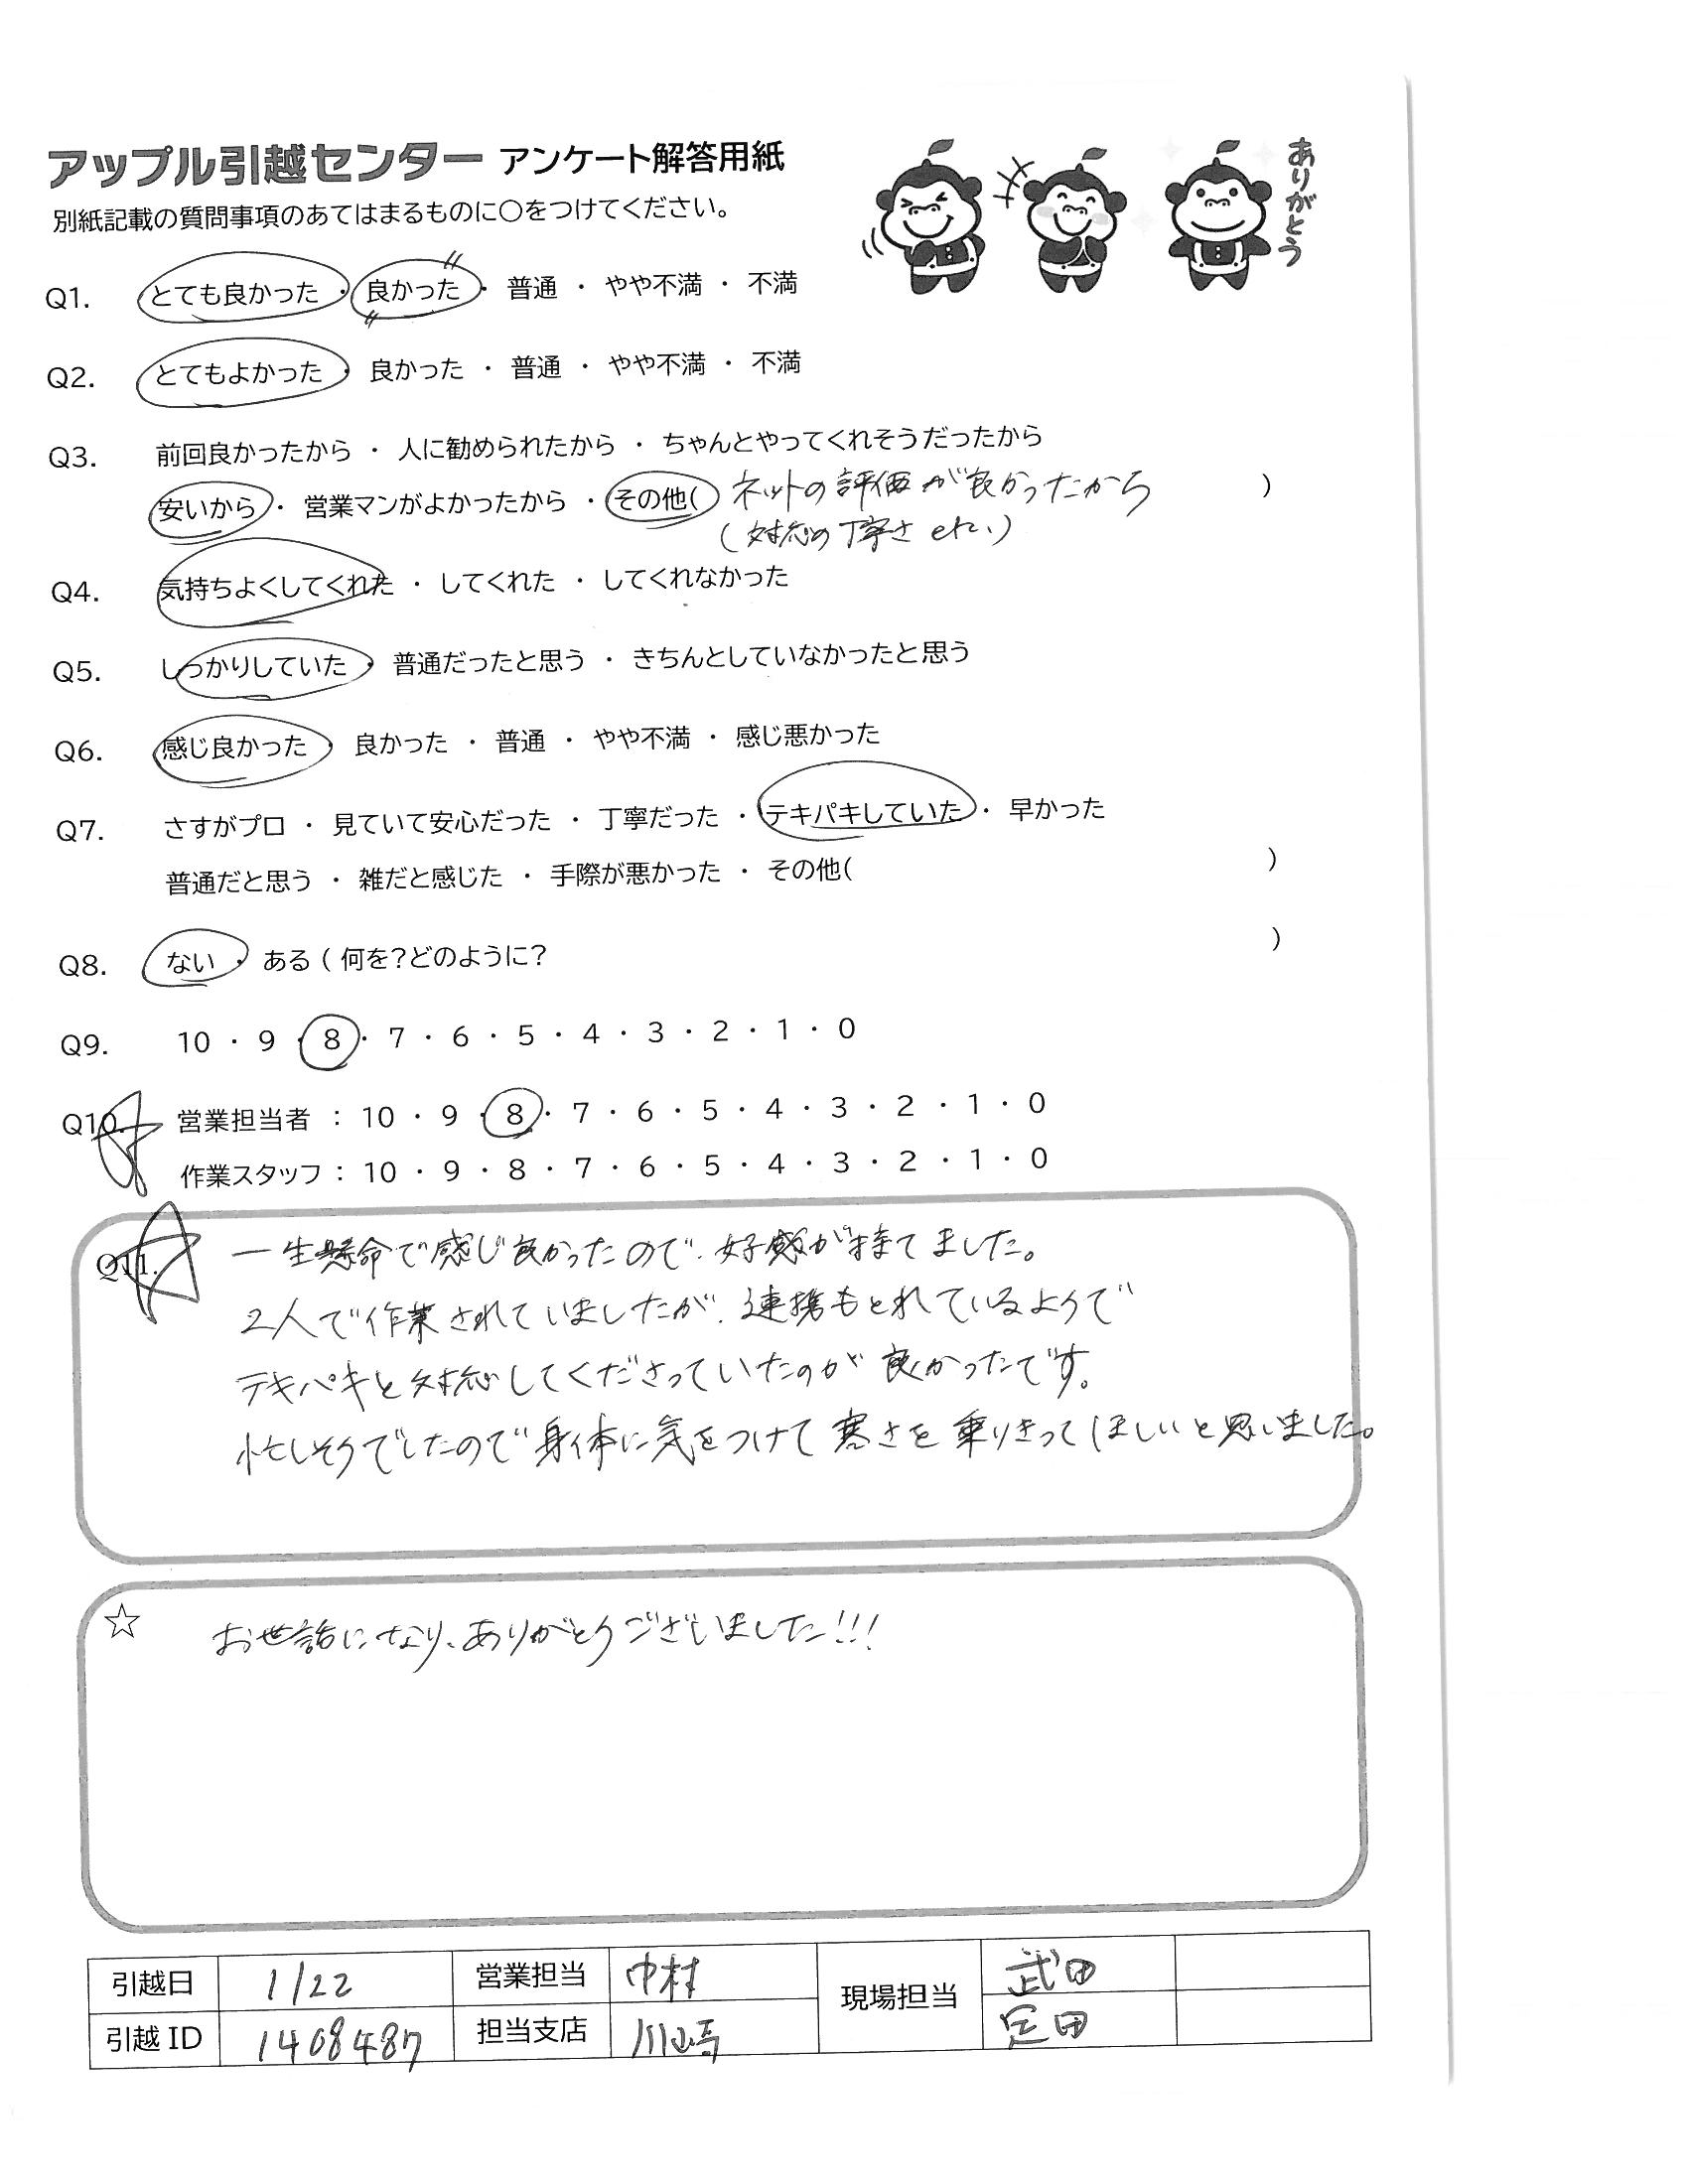 アップル引越センター アンケート解答用紙
ありがとう
別紙記載の質問事項のあてはまるものに○をつけてください。
Q1. とても良かった ・ 良かった ・ 普通 ・ やや不満 ・ 不満
Q2. とてもよかった ・ 良かった ・ 普通 ・ やや不満 ・ 不満
Q3. 前回良かったから ・ 人に勧められたから ・ ちゃんとやってくれそうだったから
安いから ・ 営業マンがよかったから ・ その他( ネットの評価が良かったから )
(対応の丁寧さ etc.)
Q4. 気持ちよくしてくれた ・ してくれた ・ してくれなかった
Q5. しっかりしていた ・ 普通だったと思う ・ きちんとしていなかったと思う
Q6. 感じ良かった ・ 良かった ・ 普通 ・ やや不満 ・ 感じ悪かった
Q7. さすがプロ ・ 見ていて安心だった ・ 丁寧だった ・ テキパキしていた ・ 早かった
普通だと思う ・ 雑だと感じた ・ 手際が悪かった ・ その他( )
Q8. ない ・ ある ( 何を?どのように? )
Q9. 10 ・ 9 ・ 8 ・ 7 ・ 6 ・ 5 ・ 4 ・ 3 ・ 2 ・ 1 ・ 0
Q10. 営業担当者 : 10 ・ 9 ・ 8 ・ 7 ・ 6 ・ 5 ・ 4 ・ 3 ・ 2 ・ 1 ・ 0
作業スタッフ : 10 ・ 9 ・ 8 ・ 7 ・ 6 ・ 5 ・ 4 ・ 3 ・ 2 ・ 1 ・ 0
Q11. 一生懸命で感じ良かったので、好感が持てました。
2人で作業されていましたが、連携もとれているようで
テキパキと対応してくださっていたのが良かったです。
忙しそうでしたので身体に気をつけて寒さを乗りきってほしいと思いました。
☆ お世話になり、ありがとうございました!!!
引越日 1/22 営業担当 中村 現場担当 武田
引越ID 1408487 担当支店 川崎 疋田